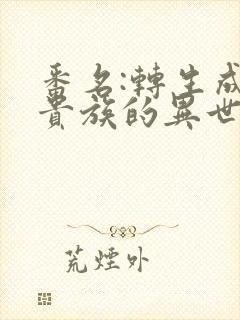 番名:轉生成
貴族的異世
荒煙外